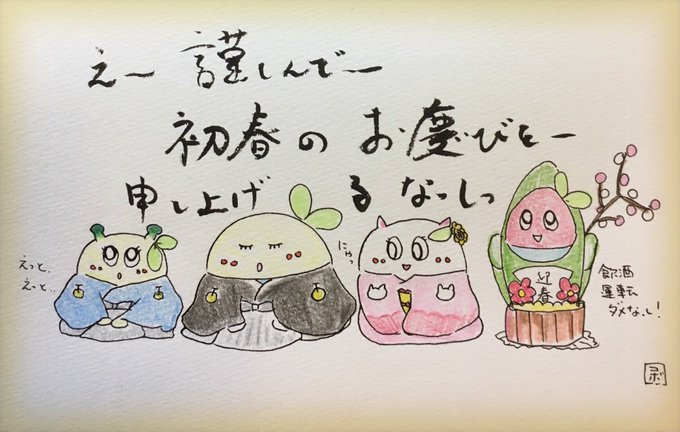 えー 謹しんでー
初春の お慶びをー
申し上げ る なっしっ
えっと、
えと‥
にゃっ
迎春
飲酒
運転
ダメなっし!